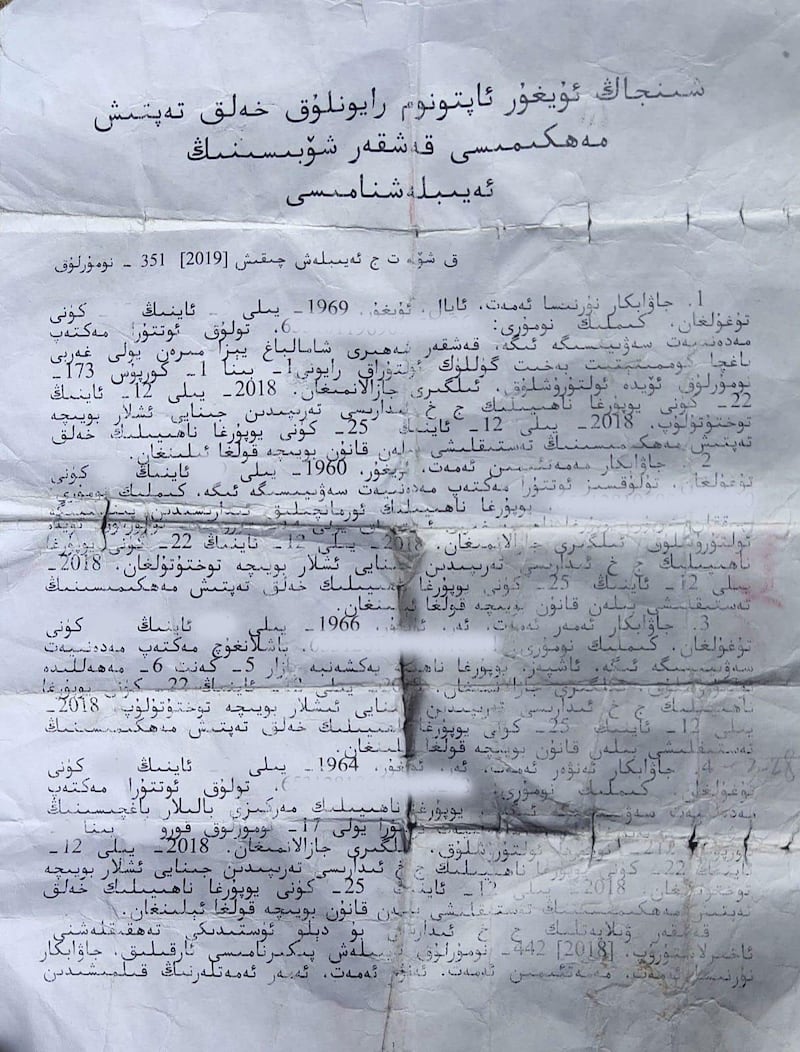 شىنجاڭ ئۇيغۇر ئاپتونوم رايونلۇق خەلق تەپتىش
مەھكىمىسى قەشقەر شۆبىسىنىڭ
ئەيىبلەشنامىسى
ق شۆ ت ج ئەيىبلەش چىقىش [2019] 351 - نومۇرلۇق
1. جاۋابكار نۇرنىسا ئەمەت، ئايال، ئۇيغۇر، 1969- يىلى - ئاينىڭ كۈنى
تۇغۇلغان. كىملىك نومۇرى: تولۇق ئوتتۇرا مەكتەپ
مەدەنىيەت سەۋىيىسىگە ئىگە، قەشقەر شەھىرى شامالباغ يېزا مىرەن يولى غەربى
باغچا كوممىتېتىت بەخىت گۈللۈك ئولتۇراق رايونى 1- بىنا 1- كورپۇس 173-
نومۇرلۇق ئۆيدە ئولتۇرۇشلۇق. ئىلگىرى جازالانمىغان. 2018- يىلى 12- ئاينىڭ
22- كۈنى يوپۇرغا ناھىيىلىك ج خ ئىدارىسى تەرىپىدىن جىنايى ئىشلار بويىچە
توختۇتۇلۇپ، 2018- يىلى 12- ئاينىڭ 25- كۈنى يوپۇرغا ناھىيىلىك خەلق
تەپتىش مەھكىمىسىنىڭ تەستىقلىشى بىلەن قانۇن بويىچە قولغا ئېلىنغان.
2. جاۋابكار مەمەتئىمىن ئەمەت، ئۇيغۇر، 1960- يىلى ئاينىڭ كۈنى
تۇغۇلغان، تولۇقسىز ئوتتۇرا مەكتەپ مەدەنىيەت سەۋىيىسىگە ئىگە، كىملىك نومۇرى:
يوپۇرغا ناھىيىلىك ئورمانچىلىق ئىدارىسىدىن
ئولتۇرۇشلۇق. ئىلگىرى جازالانمىغان. 2018- يىلى 12- ئاينىڭ 22- كۈنى يوپۇرغا
ناھىيىلىك ج خ ئىدارىسى تەرىپىدىن جىنايى ئىشلار بويىچە توختۇتۇلغان. 2018-
يىلى 12- ئاينىڭ 25- كۈنى يوپۇرغا ناھىيىلىك خەلق تەپتىش مەھكىمىسىنىڭ
تەستىقلىشى بىلەن قانۇن بويىچە قولغا ئېلىنغان.
3. جاۋابكار ئەمەر ئەمەت، ئەر، ئۇيغۇر، 1966- يىلى ئاينىڭ كۈنى
تۇغۇلغان. كىملىك نومۇرى: باشلانغۇچ مەكتەپ مەدەنىيەت
سەۋىيىسىگە ئىگە، ئاشپەز، يوپۇرغا ناھىيە يەكشەنبە بازار 5- كەنت 6- مەھەللىدە
ئىلگىرى جازالانمىغان. يىلى 12- ئاينىڭ 22- كۈنى يوپۇرغا
ناھىيىلىك ج خ ئىدارىسى تەرىپىدىن جىنايى ئىشلار بويىچە توختۇتۇلۇپ، 2018-
يىلى 12- ئاينىڭ 25- كۈنى يوپۇرغا ناھىيىلىك خەلق تەپتىش مەھكىمىسىنىڭ
تەستىقلىشى بىلەن قانۇن بويىچە قولغا ئېلىنغان.
4. جاۋابكار ئەنۋەر ئەمەت، ئەر، ئۇيغۇر، 1964- يىلى ئاينىڭ كۈنى
تۇغۇلغان. كىملىك نومۇرى: تولۇق ئوتتۇرا مەكتەپ
مەدەنىيەت يوپۇرغا ناھىيىلىك مەركىزى باللىلار باغچىسىنىڭ
يولى 17- نومۇرلۇق قورۇ بىنا
ئولتۇرۇشلۇق. ئىلگىرى جازالانمىغان. 2018- يىلى 12-
ئاينىڭ 22- كۈنى يوپۇرغا ناھىيىلىك ج خ ئىدارىسى تەرىپىدىن جىنايى ئىشلار بويىچە
توختۇتۇلغان. 2018- يىلى 12- ئاينىڭ 25- كۈنى يوپۇرغا ناھىيىلىك خەلق
تەپتىش مەھكىمىسىنىڭ تەستىقلىشى بىلەن قانۇن بويىچە قولغا ئېلىنغان.
قەشقەر ۋىلايەتلىك ج خ ئىدارىسى بۇ دېلو ئۈستىدىكى تەھقىقلەشنى
ئاخىرلاشتۇرۇپ، [2018] 442- نومۇرلۇق ئەيىبلەش پىكىرنامىسى ئارقىلىق، جاۋابكار
نۇرنىسا ئەمەت، مەمەتئىمىن ئەمەت، ئەنۋەر ئەمەت، ئەمەر ئەمەتلەرنىڭ قىلمىشىدىن